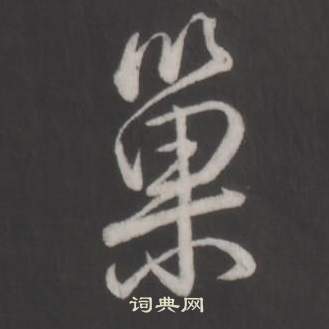 巢
词典网